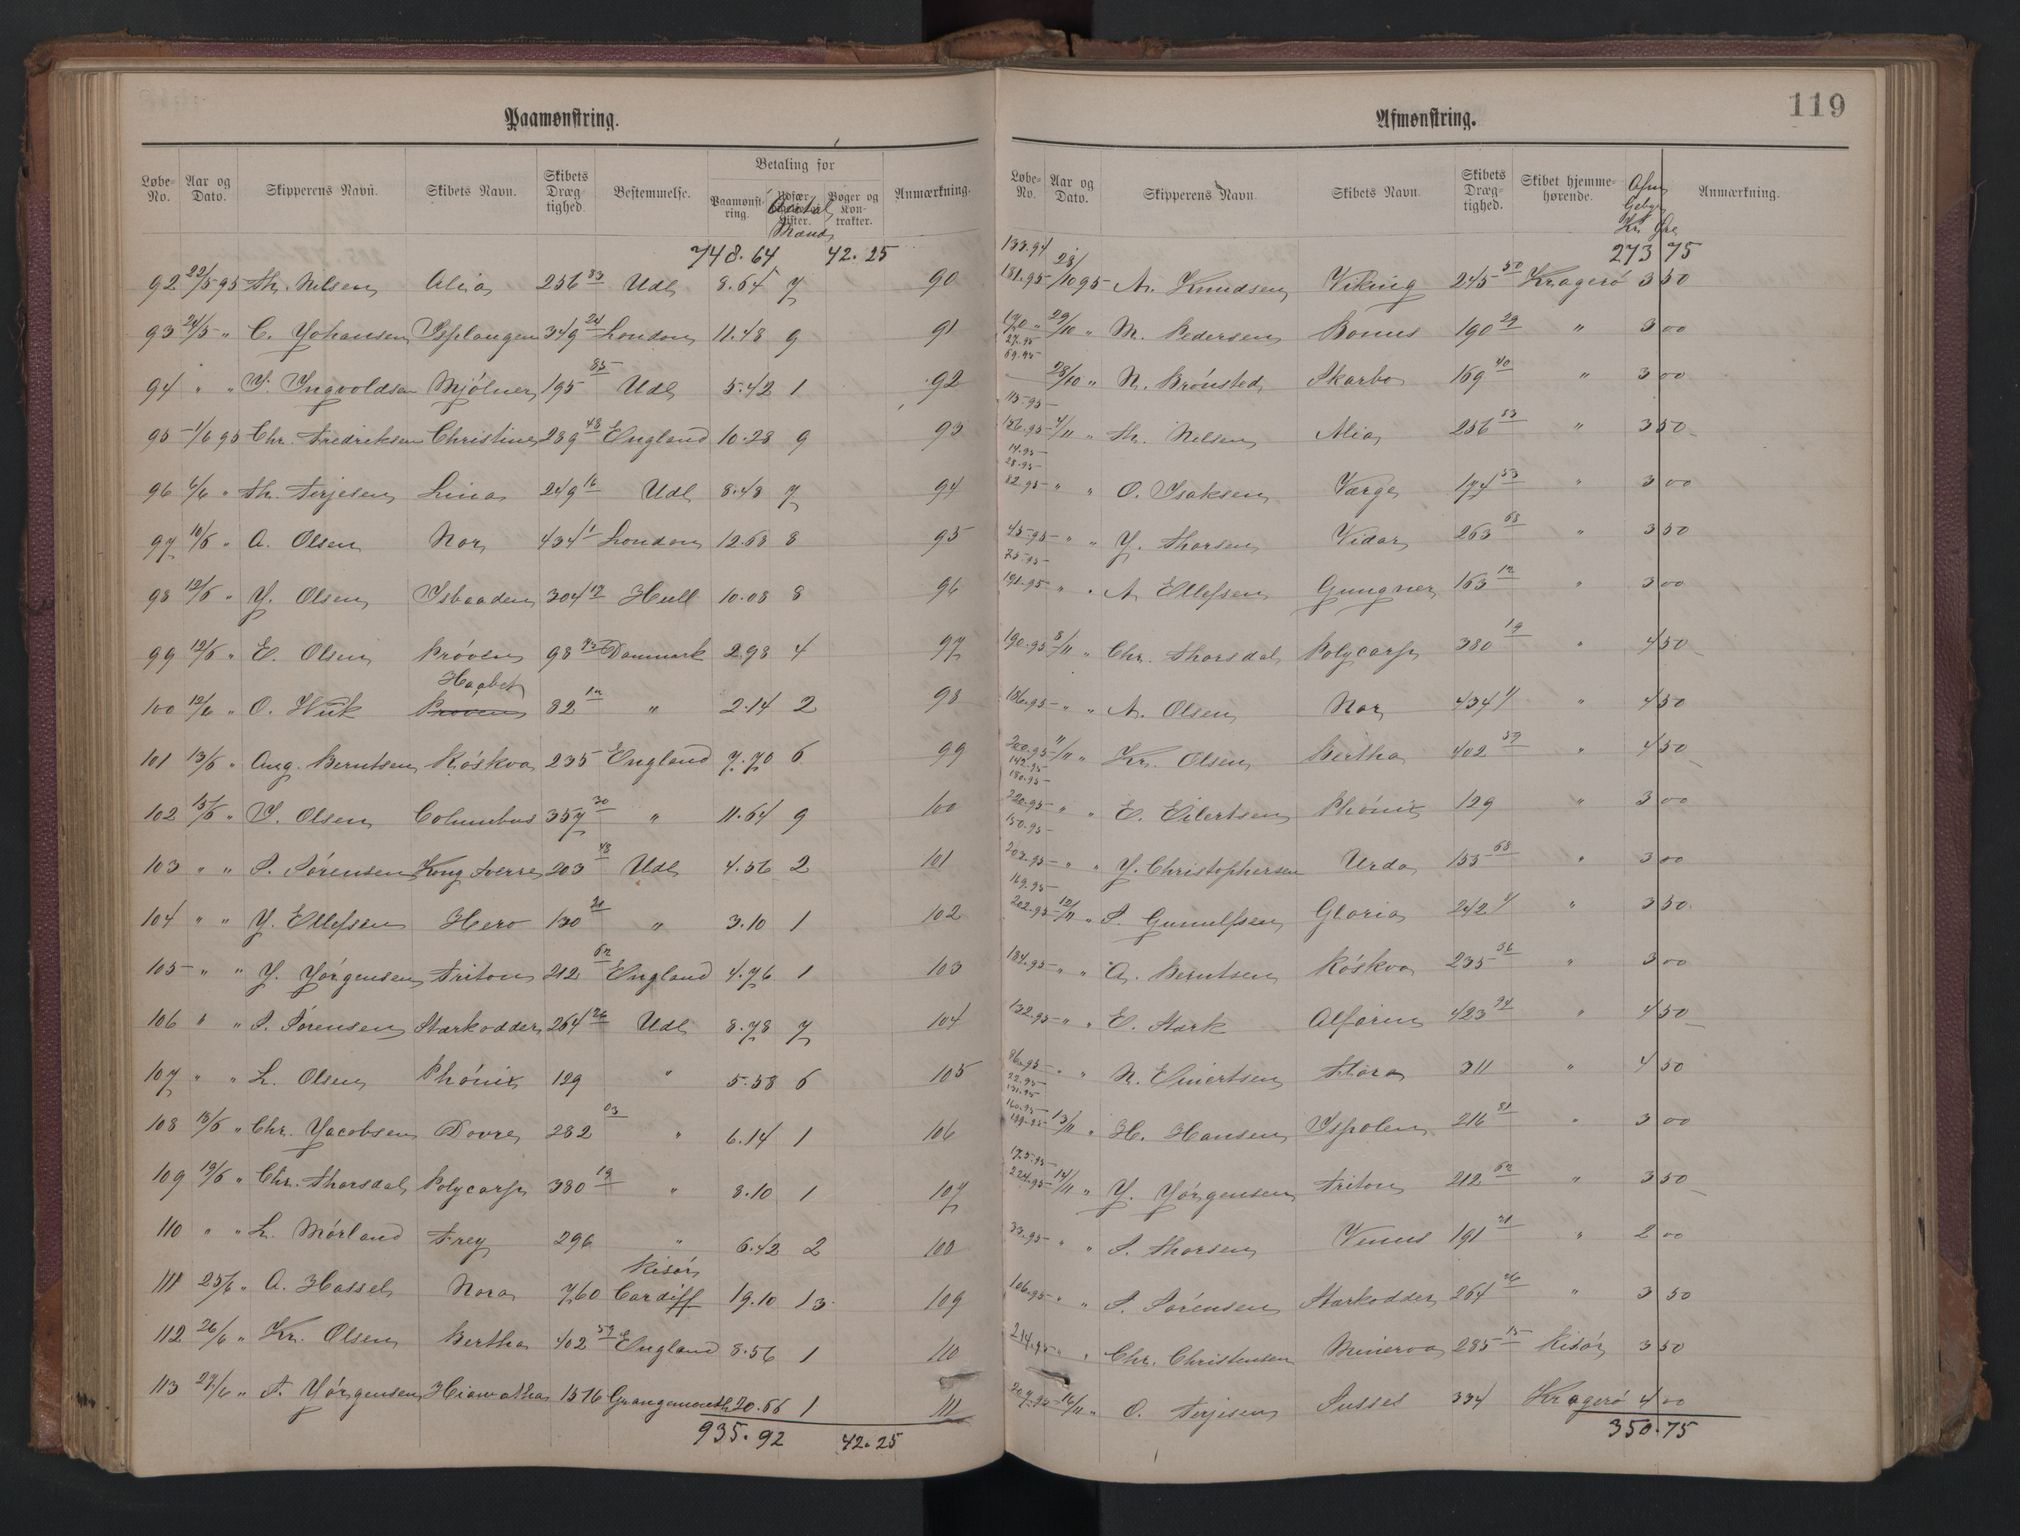 Paamønstring.
Løbe-No. Aar og Dato. Skipperens Navn. Skibets Navn. Skibets Dræg-tighed. Bestemmelse. Betaling for Paamønst-ring. Antal Mænd Bøger og Kon-trakter. Anmærkning.
748.64 42.25
92 22/5 95 Th. Nilsen Alia 256 83 Udl 8.64 7
93 24/5 " C. Johansen Isplangen 349 24 London 11.48 9
94 " " J. Ingvoldsen Mjölner 195 85 Udl 5.42 1
95 1/6 95 Chr. Fredriksen Christine 289 48 England 10.28 9
96 6/6 " Th. Terjesen Lina 249 16 Udl 8.48 7
97 10/6 " A. Olsen Nor 434 1 London 12.68 8
98 12/6 " J. Olsen Isbaaden 304 17 Hull 10.08 8
99 12/6 " E. Olsen Pröven 98 73 Danmark 2.98 4
100 12/6 " O. Wiik Haabet Pröven 82 12 " 2.14 2
101 13/6 " Aug. Berntsen Röskva 235 England 7.70 6
102 15/6 " J. Olsen Columbus 357 30 " 11.64 9
103 " " S. Sørensen Kong Sverre 203 48 Udl 4.56 2
104 " " J. Ellefsen Hero 130 21 " 3.10 1
105 " " J. Jörgensen Triton 212 62 England 4.76 1
106 " " S. Sørensen Stærkodder 264 26 Udl 8.78 7
107 " " L. Olsen Phönix 129 " 5.58 6
108 18/6 " Chr. Jacobsen Dovre 282 03 " 6.14 1
109 19/6 " Chr. Thorsdal Polycarp 380 19 " 8.10 1
110 " " L. Mörland Frey 296 " 6.42 2
111 25/6 " A. Hassel Nora 760 Risör Cardiff 19.10 13
112 26/6 " Kr. Olsen Bertha 402 59 England 8.56 1
113 27/6 " T. Jörgensen Hiawatha 1576 Grangemouth 20.66 1
935.92 42.25
119
Afmønstring.
Løbe-No. Aar og Dato. Skipperens Navn. Skibets Navn. Skibets Dræg-tighed. Skibet hjemme-hørende. Kr Øre Anmærkning.
133.94 273 75
90 181.95 28/10 95 A. Knudsen Viking 245 50 Kragerö 3 50
91 170 " 29/10 " M. Pedersen Bonus 190 29 " 3 00
27.95
69.95
92 28/10 " N. Brönsted Skarbo 169 40 " 3 00
115.95
93 126.95 4/11 " Th. Nilsen Alia 256 83 " 3 50
14.95
28.95
94 82.95 " " O. Isaksen Varge 174 53 " 3 00
95 45.95 " " J. Thorsen Vidar 263 68 " 3 50
75.95
96 191.95 " " A. Ellefsen Gungner 163 12 " 3 00
97 190.95 8/11 " Chr. Thorsdal Polycarp 380 19 " 4 50
98 186.95 " " A. Olsen Nor 434 1/ " 4 50
99 200.95 11/11 " Kr. Olsen Bertha 402 59 " 4 50
142.95
180.95
100 220.95 " " E. Eilertsen Phönix 129 " 3 00
150.95
101 203.95 " " J. Christophersen Urda 155 68 " 3 00
169.95
102 202.95 12/11 " S. Gunulfsen Gloria 242 1/ " 3 50
103 184.95 " " A. Berntsen Röskva 235 36 " 3 00
104 132.95 " " E. Stærk Alfarin 423 94 " 4 50
105 86.95 " " N. Einertsen Flora 311 " 4 50
22.95
131.95
160.95
106 199.95 13/11 " H. Hansen Ispolen 216 81 " 3 00
175.95
107 224.95 14/11 " J. Jörgensen Triton 212 62 " 3 50
108 33.95 " " S. Thorsen Venus 191 21 " 2 00
109 106.95 " " S. Sörensen Stærkodder 264 26 " 3 50
110 214.95 " " Chr. Christensen Minerva 285 15 Risör 3 50
111 207.95 16/11 " O. Terjesen Susses 334 Kragerö 4 00
350.75